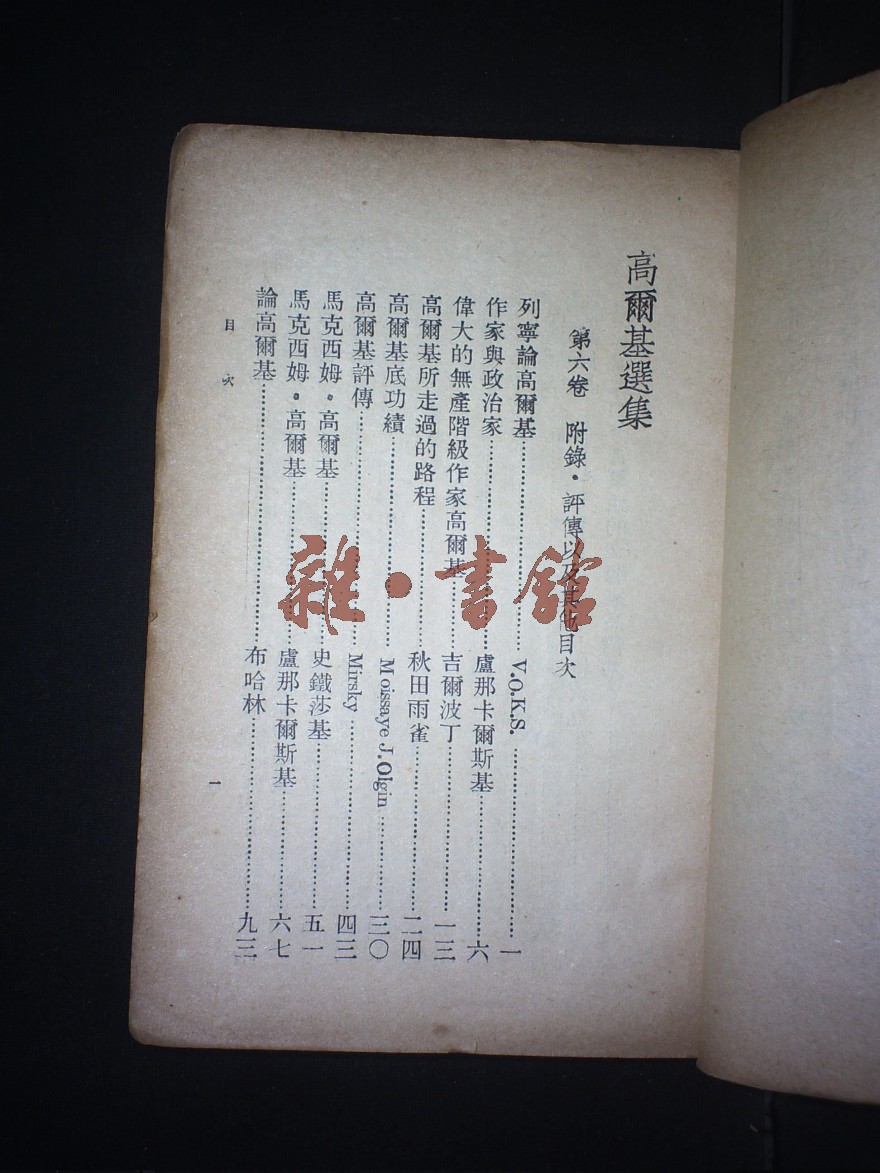 高爾基選集
第六卷 附錄·評傳以及其他目次
列寧論高爾基……V.O.K.S.……一
作家與政治家……盧那卡爾斯基……六
偉大的無產階級作家高爾基……吉爾波丁……一三
高爾基所走過的路程……秋田雨雀……二四
高爾基底功績……Moissaye J. Olgin……三〇
高爾基評傳……Mirsky……四三
馬克西姆·高爾基……史鐵莎基……五一
馬克西姆·高爾基……盧那卡爾斯基……六七
論高爾基……布哈林……九三
目次
一
雜·書館